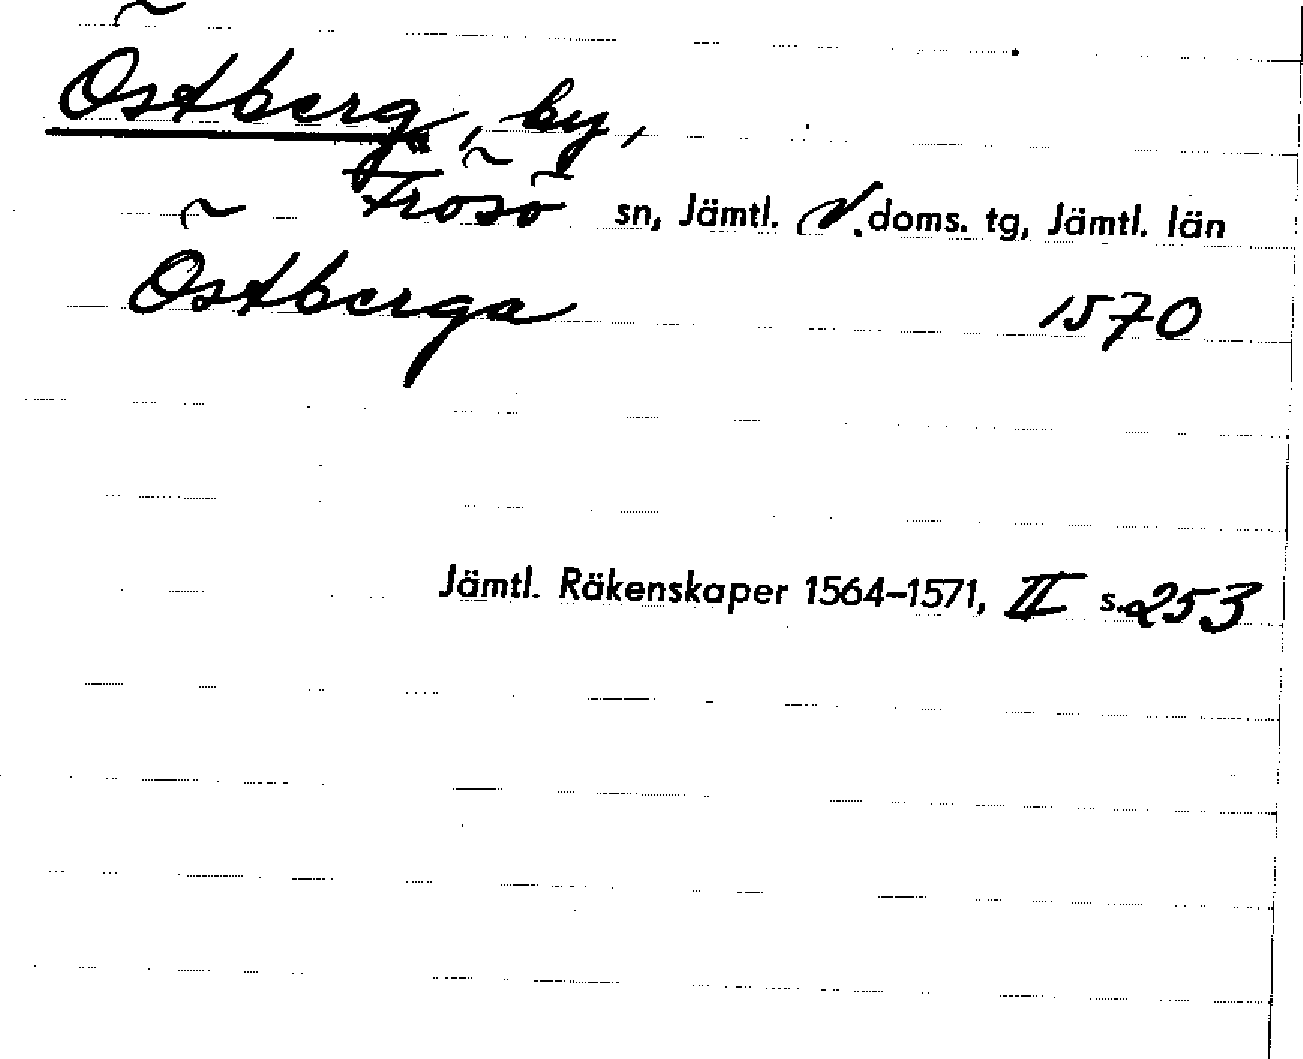 Östberg, by,
Frösö sn, Jämtl. N. doms. tg, Jämtl. län
Östberga 1570
Jämtl. Räkenskaper 1564–1571, II s. 253